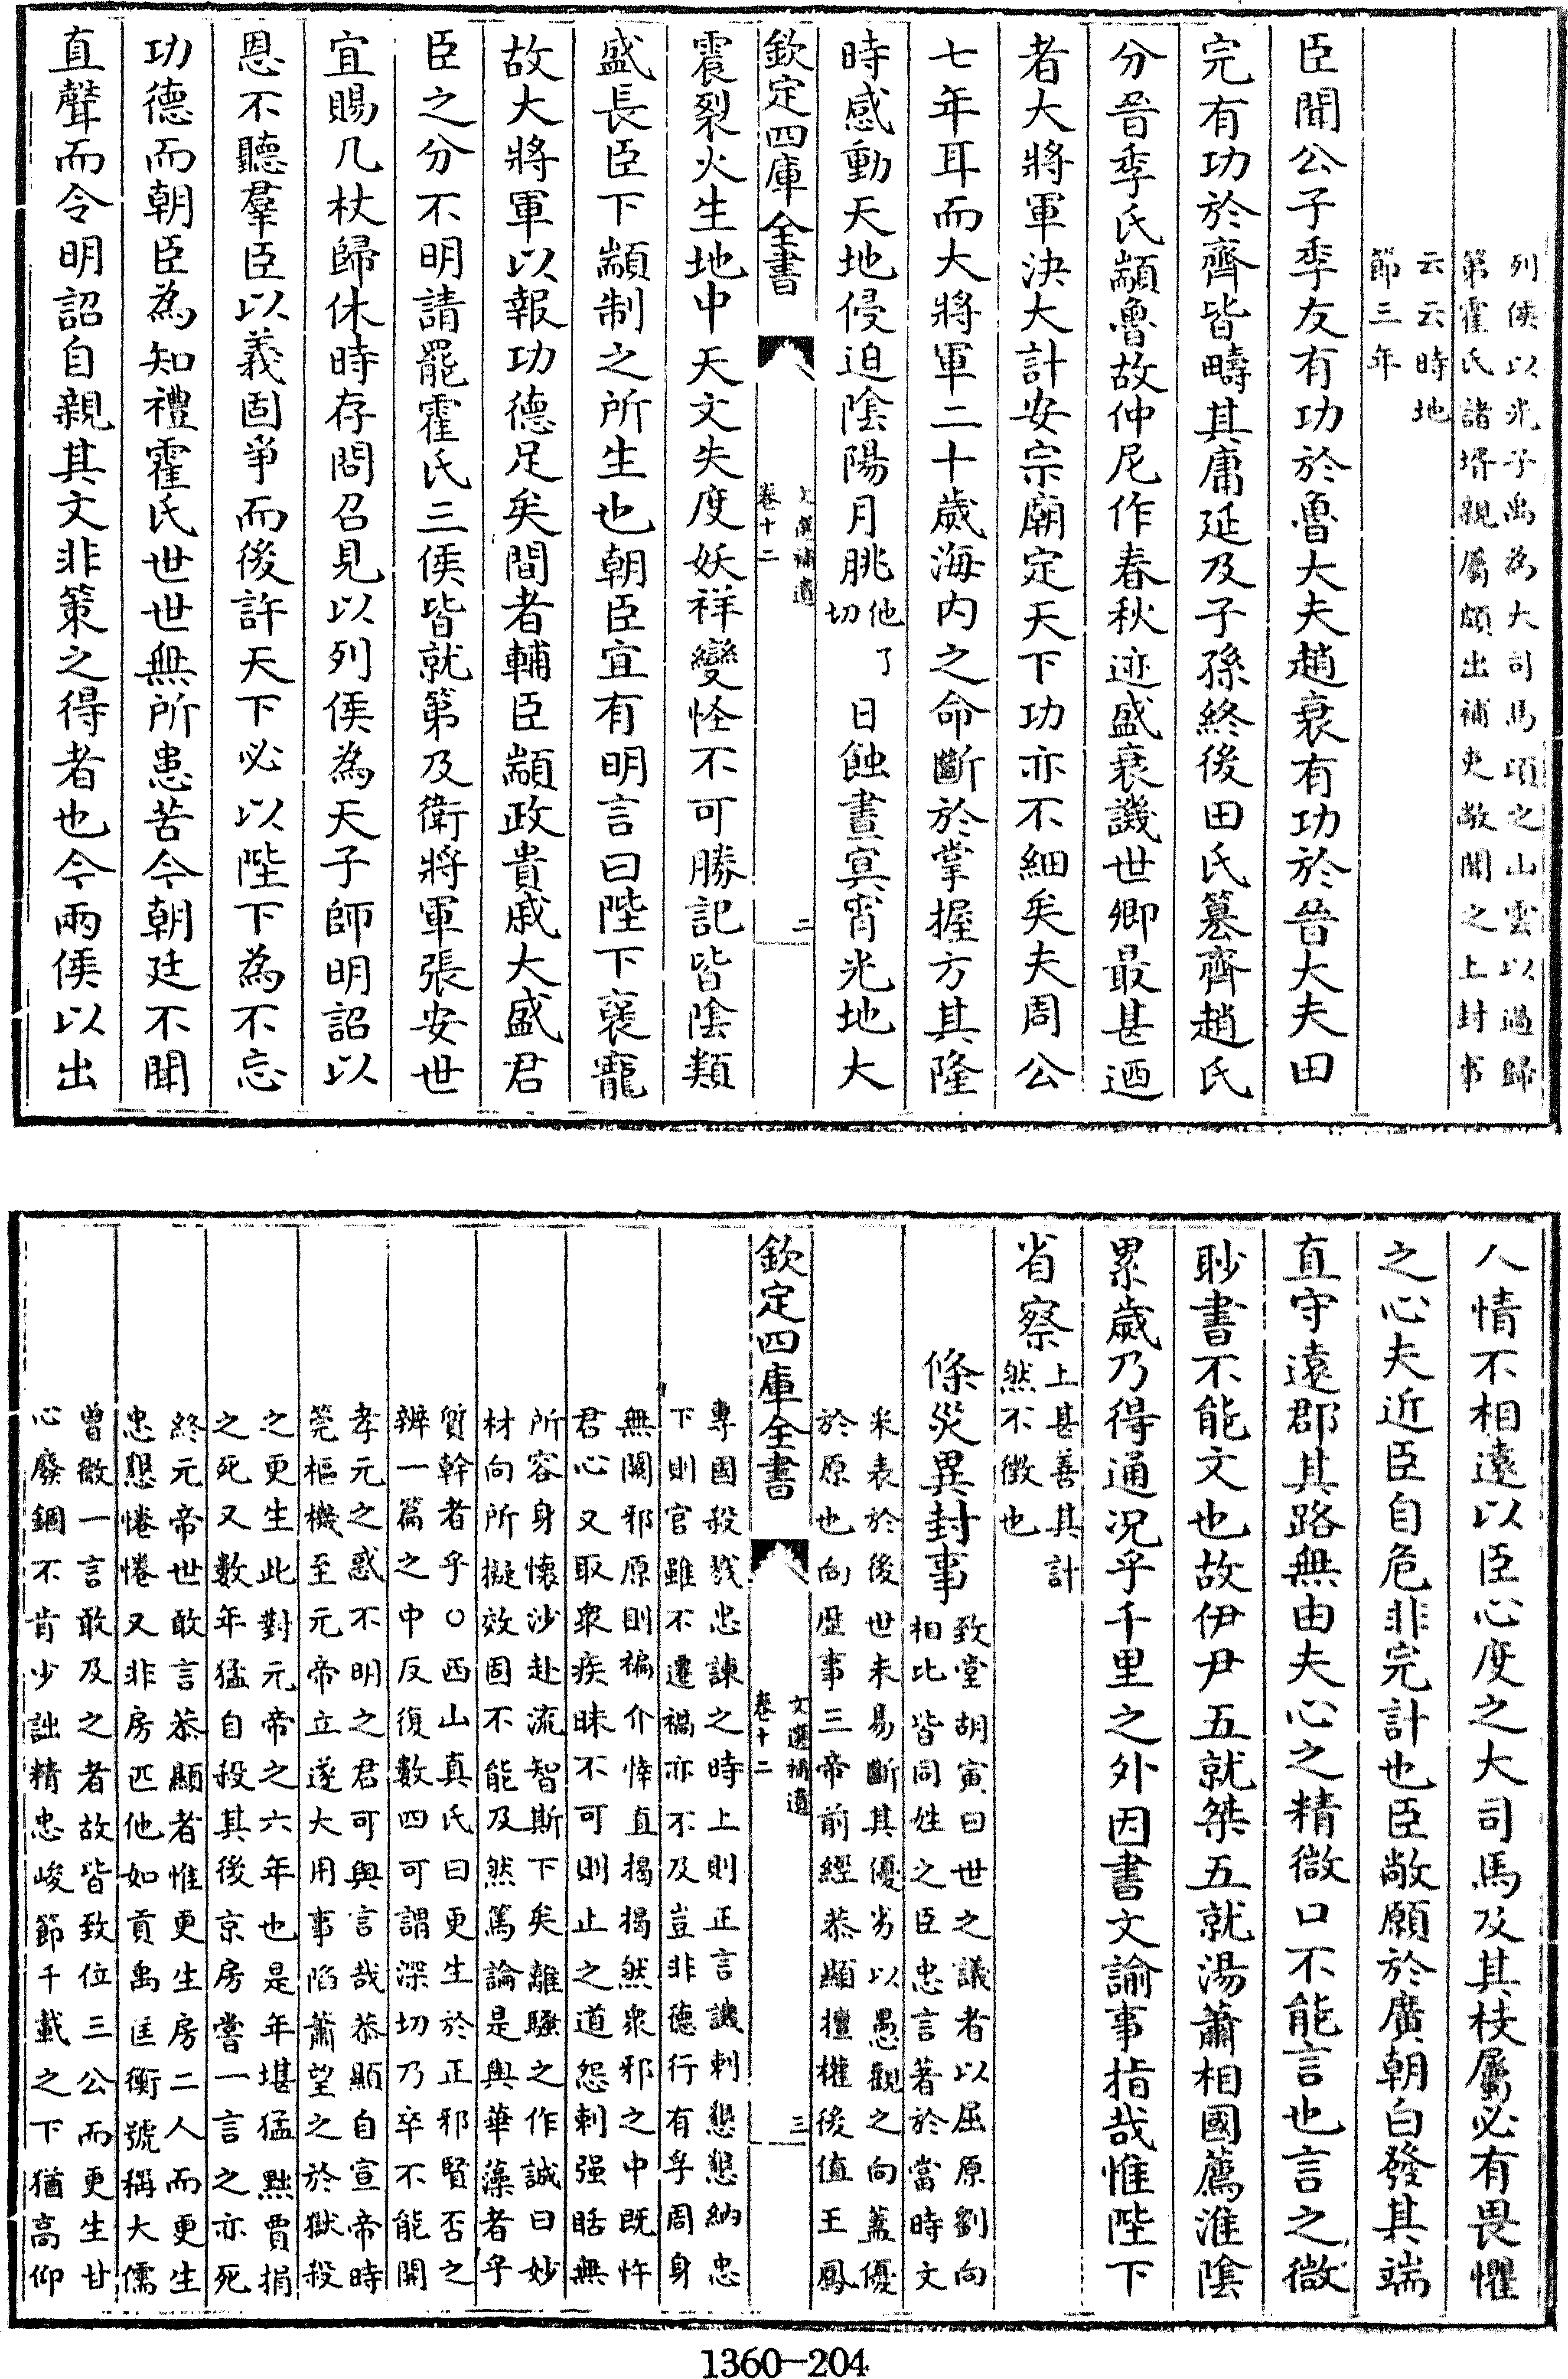 列侯以光子禹為大司馬頃之山雲以過歸
第霍氏諸壻親屬頗出補吏敞聞之上封事
云云時地
節三年
臣聞公子季友有功於魯大夫趙衰有功於晉大夫田
完有功於齊皆疇其庸延及子孫終後田氏簒齊趙氏
分晉季氏顓魯故仲尼作春秋迹盛衰譏世卿最甚迺
者大將軍決大計安宗廟定天下功亦不細矣夫周公
七年耳而大將軍二十歲海内之命斷於掌握方其隆
時感動天地侵迫陰陽月朓他了切日蝕晝㝠宵光地大
欽定四庫全書
文選補遺
卷十二
二
震裂火生地中天文失度妖祥變怪不可勝記皆陰類
盛長臣下顓制之所生也朝臣宜有明言曰陛下襃寵
故大將軍以報功德足矣間者輔臣顓政貴戚大盛君
臣之分不明請罷霍氏三侯皆就第及衛將軍張安世
宜賜几杖歸休時存問召見以列侯為天子師明詔以
恩不聽羣臣以義固爭而後許天下必以陛下為不忘
功德而朝臣為知禮霍氏世世無所患苦今朝廷不聞
直聲而令明詔自親其文非策之得者也今兩侯以出
人情不相遠以臣心度之大司馬及其枝屬必有畏懼
之心夫近臣自危非完計也臣敞願於廣朝白發其端
直守遠郡其路無由夫心之精微口不能言也言之微
眇書不能文也故伊尹五就桀五就湯蕭相國薦淮陰
累歲乃得通况乎千里之外因書文諭事指哉惟陛下
省察上甚善其計
然不徴也
條災異封事致堂胡寅曰世之議者以屈原劉向
相比皆同姓之臣忠言著於當時文
采表於後世未易斷其優劣以愚觀之向蓋優
於原也向歴事三帝前經恭顯擅權後值王鳳
欽定四庫全書
文選補遺
卷十二
三
專國殺戮忠諫之時上則正言譏刺懇懇納忠
下則官雖不遷禍亦不及豈非德行有孚周身
無闕邪原則褊介悻直揭揭然衆邪之中既忤
君心又取衆疾昧不可則止之道怨刺强聒無
所容身懷沙赴流智斯下矣離騷之作誠曰妙
材向所擬效固不能及然篤論是與華藻者乎
質幹者乎○西山真氏曰更生於正邪賢否之
辨一篇之中反復數四可謂深切乃卒不能開
孝元之惑不明之君可與言哉恭顯自宣帝時
筦樞機至元帝立遂大用事䧟蕭望之於獄殺
之更生此對元帝之六年也是年堪猛黜賈捐
之死又數年猛自殺其後京房嘗一言之亦死
終元帝世敢言恭顯者惟更生房二人而更生
忠懇惓惓又非房匹他如貢禹匡衡號稱大儒
曾微一言敢及之者故皆致位三公而更生甘
心廢錮不肯少詘精忠峻節千載之下猶高仰
1360-204